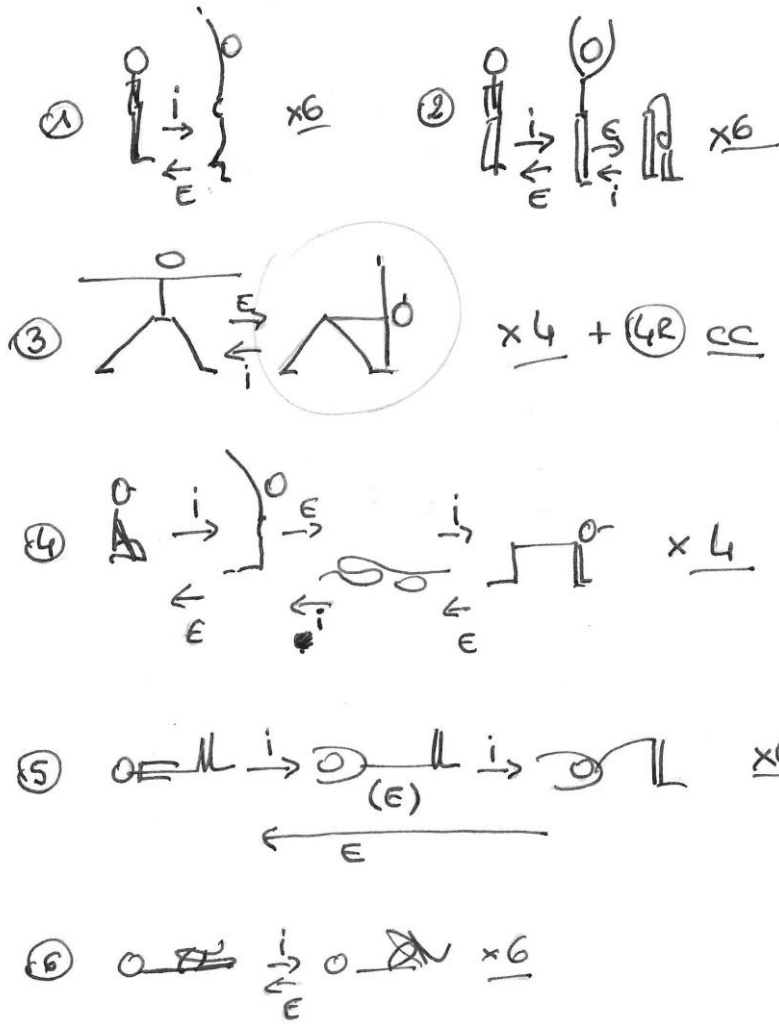 ① i E ×6
② i E E i ×6
③ E i ×4 + 4R CC
④ i E E i i E ×4
⑤ i (E) i E
⑥ i E ×6